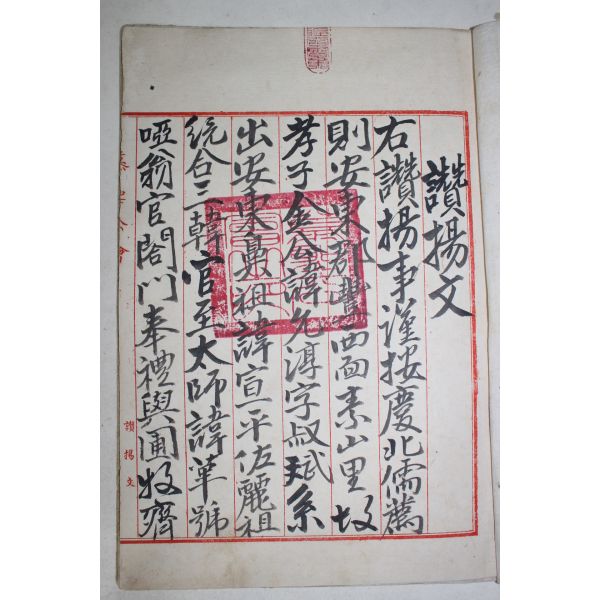 讚揚文
右讚揚事謹按慶北儒薦
則安東郡豊西面素山里故
孝子金公諱允漳字叔斌系
出安東鼻祖諱宣平佐麗祖
統合三韓官至太師諱革號
啞翁官閤門奉禮與圃牧齊
讚揚文